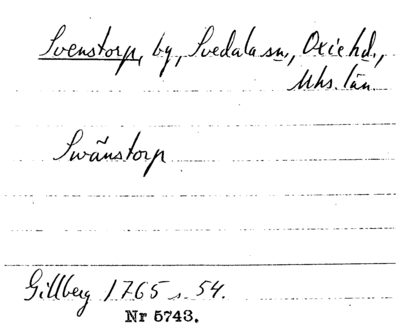 Svenstorp, by, Svedala sn., Oxie hd.,
Mhs. län.
Swänstorp
Gillberg 1765 s. 54.
Nr 5743.